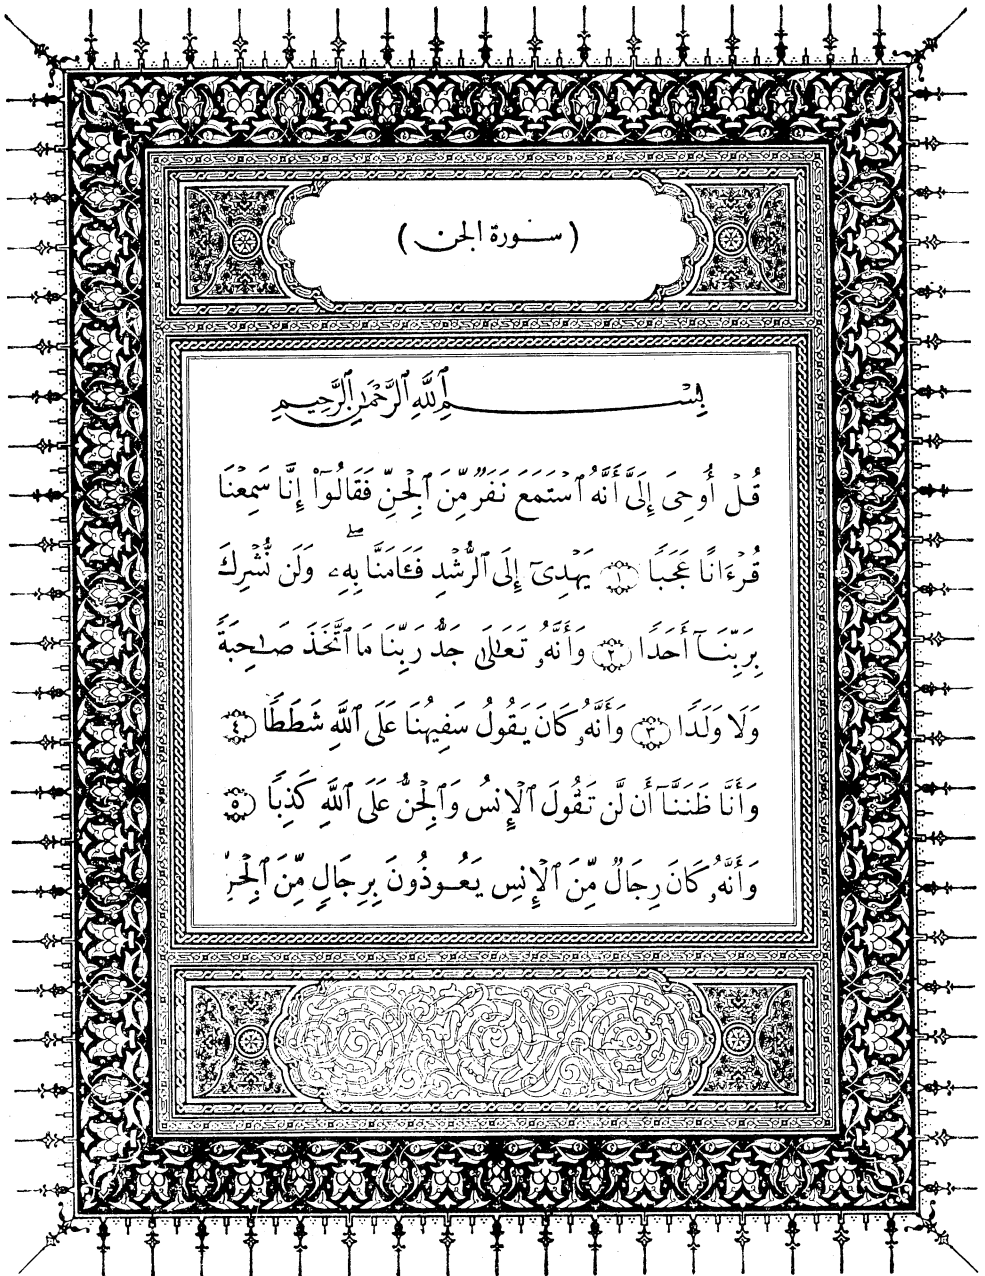 ( سورة الجن )
بِسْمِ ٱللَّهِ ٱلرَّحْمَٰنِ ٱلرَّحِيمِ
قُلْ أُوحِىَ إِلَىَّ أَنَّهُ ٱسْتَمَعَ نَفَرٌ مِّنَ ٱلْجِنِّ فَقَالُوٓا۟ إِنَّا سَمِعْنَا
قُرْءَانًا عَجَبًا ١ يَهْدِىٓ إِلَى ٱلرُّشْدِ فَـَٔامَنَّا بِهِۦ ۖ وَلَن نُّشْرِكَ
بِرَبِّنَآ أَحَدًا ٢ وَأَنَّهُۥ تَعَٰلَىٰ جَدُّ رَبِّنَا مَا ٱتَّخَذَ صَٰحِبَةً
وَلَا وَلَدًا ٣ وَأَنَّهُۥ كَانَ يَقُولُ سَفِيهُنَا عَلَى ٱللَّهِ شَطَطًا ٤
وَأَنَّا ظَنَنَّآ أَن لَّن تَقُولَ ٱلْإِنسُ وَٱلْجِنُّ عَلَى ٱللَّهِ كَذِبًا ٥
وَأَنَّهُۥ كَانَ رِجَالٌ مِّنَ ٱلْإِنسِ يَعُوذُونَ بِرِجَالٍ مِّنَ ٱلْجِنِّ